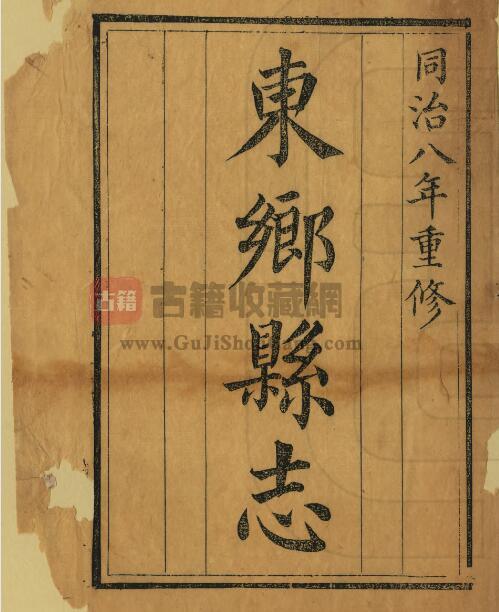 同治八年重修
東鄉縣志
古籍
古籍收藏網